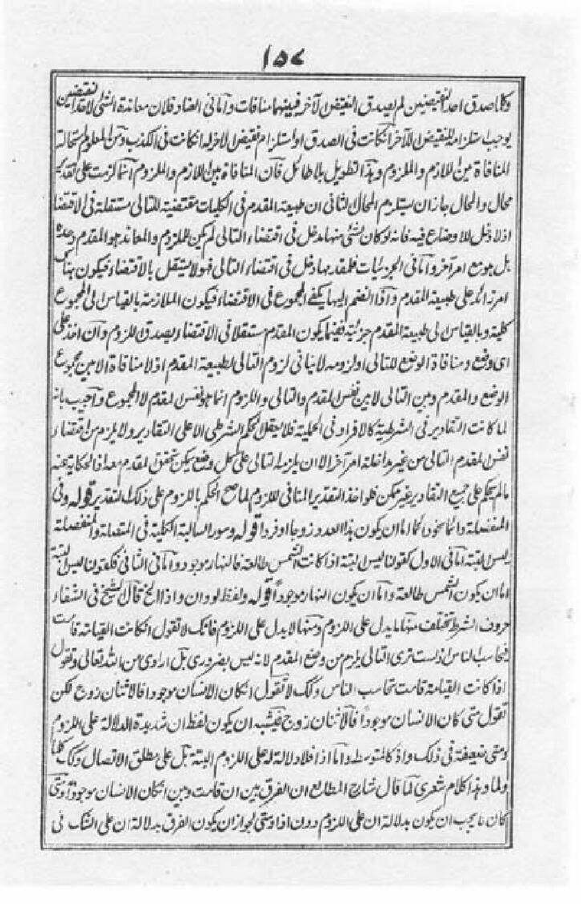 ١٥٧
وكلما صدق احد النقيضين لم يصدق النقيض الآخر فبينهما منافات واما فى العناد فلان معاندة الشئ لاحد النقيضين
يوجب استلزامه للنقيض الآخر ان كانت فى الصدق او استلزام نقيض الآخر له ان كانت فى الكذب ومن المعلوم استحالة
المنافاة بين اللازم والملزوم وهذا تطويل بلا طائل فان المنافاة بين اللازم والملزوم انما لزمت على تقدير
محال والمحال جاز ان يستلزم المحال الثانى ان طبيعة المقدم فى الكليات مقتضية للتالى مستقلة فى الاقتضاء
اذ لا دخل للاوضاع فيه فانه لو كان لشئ منها مدخل فى اقتضاء التالى لم يكن الملزوم والمعاند هو المقدم وحده
بل هو مع امر آخر واما فى الجزئيات فللمقدم بها دخل فى اقتضاء التالى فهو لا يستقل بالاقتضاء فيكون هناك
امر زائد على طبيعة المقدم واذا انضم اليها يكفى المجموع فى الاقتضاء فيكون الملازمة بالقياس الى المجموع
كلية وبالقياس الى طبيعة المقدم جزئية فبينا يكون المقدم مستقلا فى الاقتضاء يصدق اللزوم وان اخذ على
اى وضع ومنافاة الوضع للتالى او لزومه لا ينافى لزوم التالى لطبيعة المقدم اذ لا منافاة الا بين مجموع
الوضع والمقدم وبين التالى لا بين نفس المقدم والتالى واللزوم انما هو نفس المقدم لا المجموع واجيب بانه
لما كانت التقادير فى الشرطية كالافراد فى الحملية فلا يعقل الحكم الشرطى الا على التقادير ولا يلزم من اقتضاء
نفس المقدم التالى من غير مداخلة امر آخر الا ان يلزم التالى على كل وضع يمكن تحقق المقدم معه اذ الحكاية عنه
ما لم يحكم على جميع التقادير غير ممكن فلو اخذ التقدير المنافى للزوم لما صح الحكم باللزوم على ذلك التقدير قوله وفى
المنفصلة دائما نحو دائما اما ان يكون هذا العدد زوجا او فردا قوله وسور السالبة الكلية فى المتصلة والمنفصلة
ليس البتة اما فى الاول كقولنا ليس البتة اذا كانت الشمس طالعة فالنهار موجود واما فى الثانى فكقولنا ليس البتة
اما ان يكون الشمس طالعة واما ان يكون النهار موجودا قوله ولفظ لو وان واذا الخ قال الشيخ فى الشفاء
حروف الشرط تختلف منها ما يدل على اللزوم ومنها لا يدل على اللزوم فانك لا تقول ان كانت القيامة قامت
فيحاسب الناس اذ لست ترى التالى يلزم من وضع المقدم لانه ليس بضرورى بل ارادى من الله تعالى وتقول
اذا كانت القيامة قامت تحاسب الناس وكذلك لا تقول ان كان الانسان موجودا فالاثنان زوج لكن
تقول متى كان الانسان موجودا فالاثنان زوج فيشبه ان يكون لفظ ان شديدة الدلالة على اللزوم
ومتى ضعيفة فى ذلك واذ كالمتوسط واما اذا فلا دلالة له على اللزوم البتة بل على مطلق الاتصال وكذلك كلما
ولما وهذا كلام شعرى كما قال شارح المطالع ان الفرق بين ان قامت وبين ان كان الانسان موجودا ومتى
كان ما يجب ان يكون بدلالة ان على اللزوم دون اذا ومتى لجواز ان يكون الفرق بدلالة ان على الشك فى